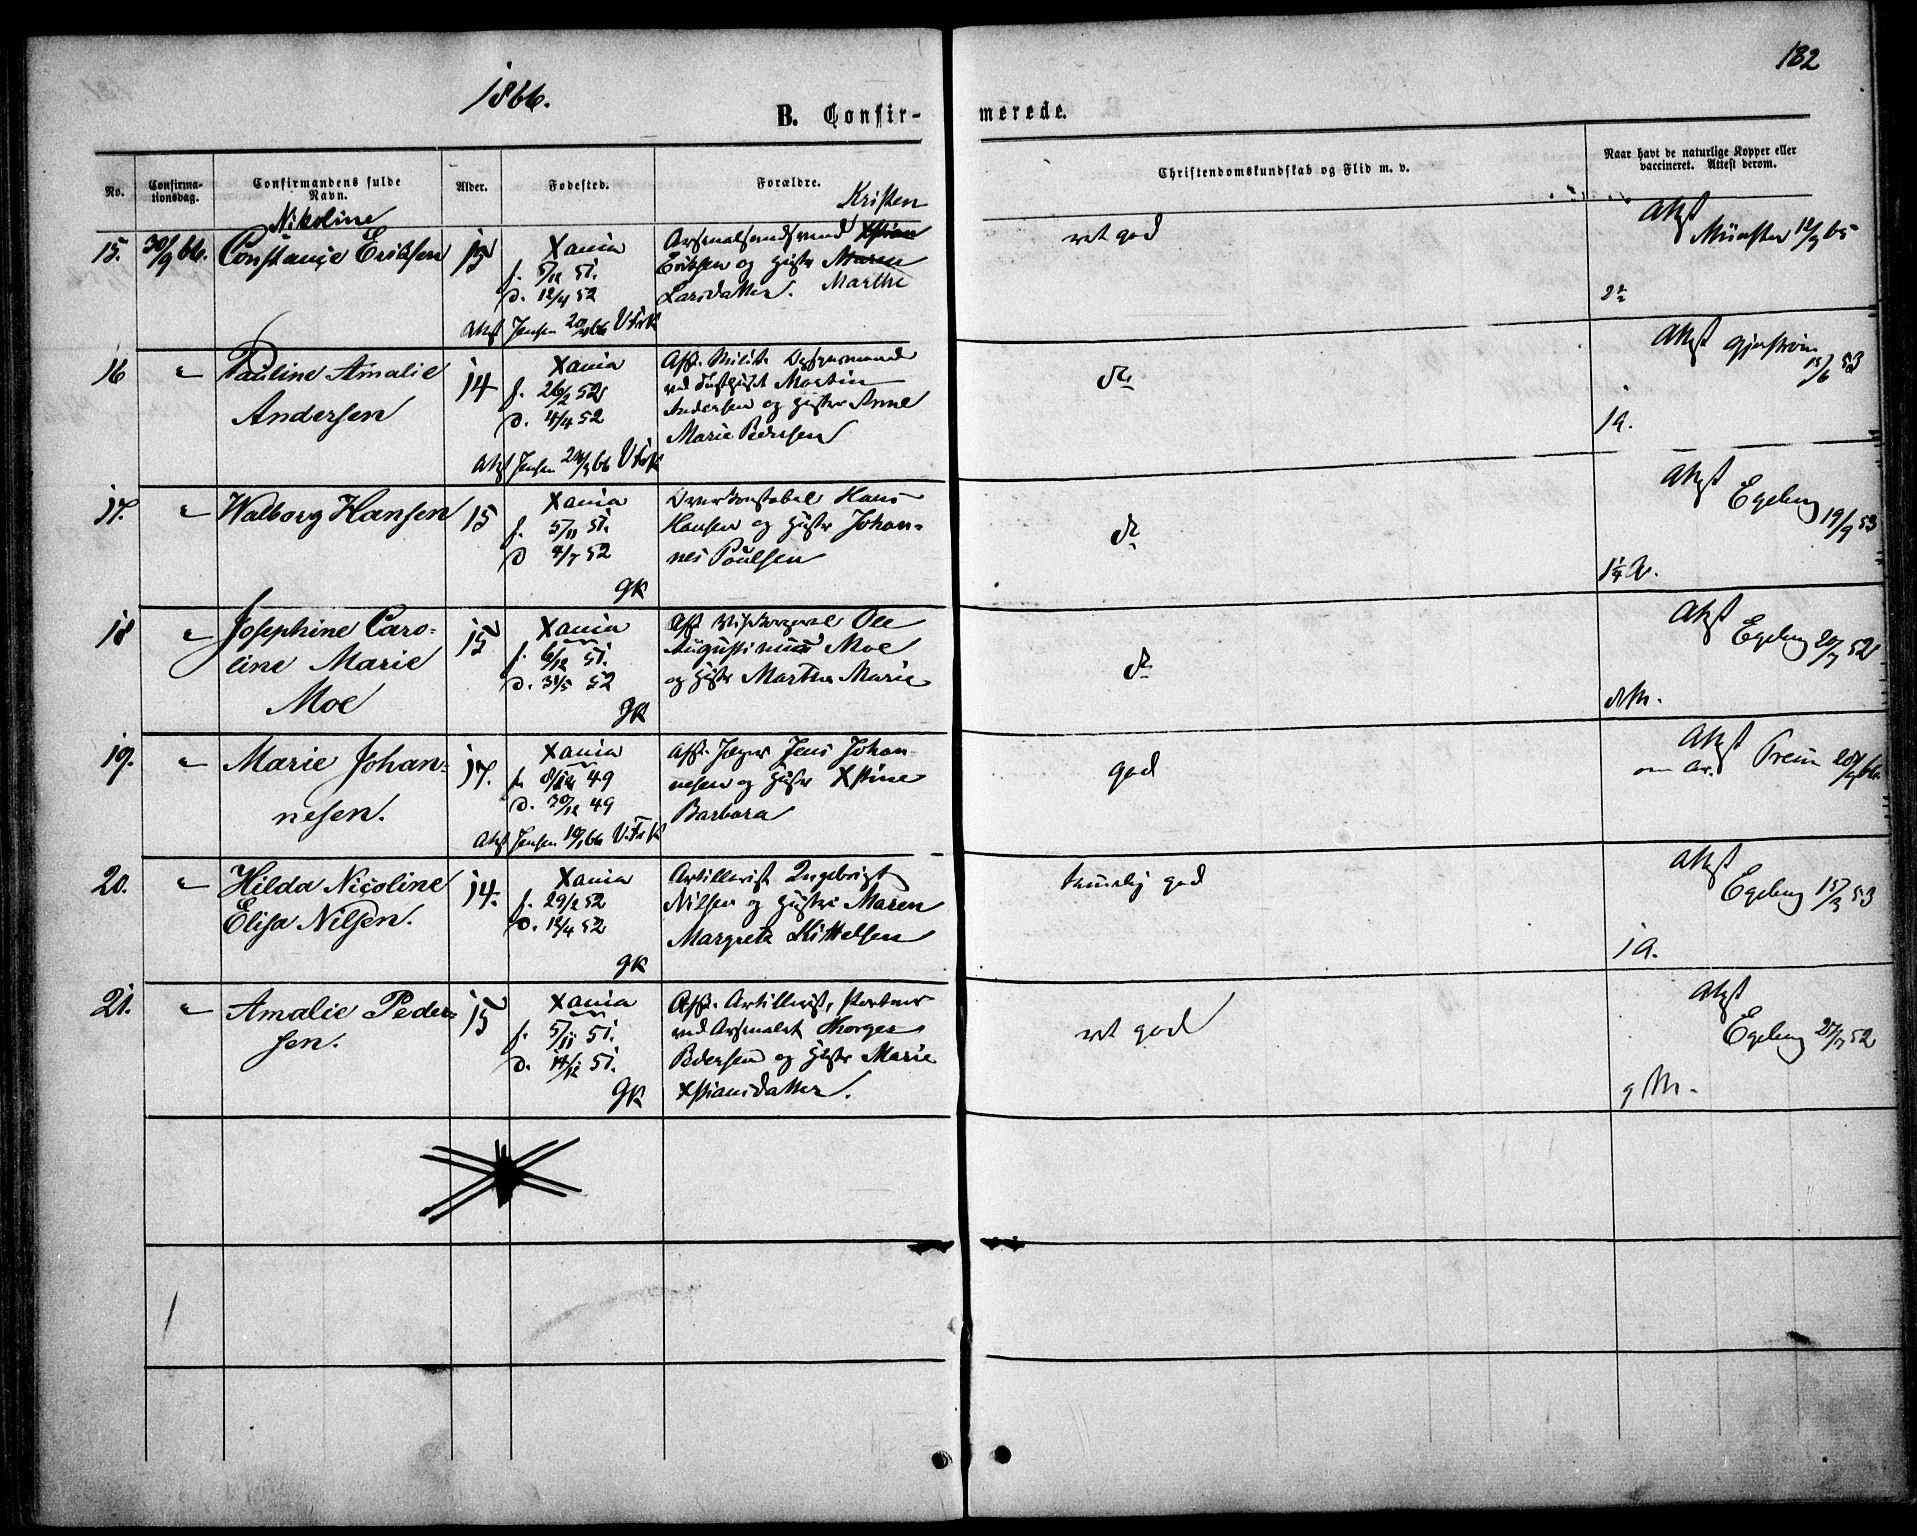 1866.
182
B. Confir-
merede.
No.
Confirma-
tionsdag.
Confirmandens fulde
Navn.
Alder.
Fødested.
Forældre.
Christendomskundskab og Flid m. v.
Naar havt de naturlige Kopper eller
vaccineret. Attest derom.
15. 30/9 66.
Nikoline
Constance Eriksen
15
Xania
f. 5/12 51.
d. 12/4 52
Attst Jensen 20/9 66 V. Frk
Kristen
Arsenalsandsmand Xstian
Eriksen og Hustr Maren
Larsdatter. Marthe
ret god
Attst
Münster 12/9 65
16 "
Pauline Amalie
Andersen
14
Xania
f. 26/2 52
d. 4/4 52
Attst Jensen 66 V. Frk
Afsk. Milit.
Martin
Andersen og Hustr Anne
Marie Pedersen
do
Attst
15/6 53
1 A.
17. "
Walborg Hansen
15
Xania
f. 5/11 51.
d 4/7 52
GK
Overkonstabel Hans
Hansen og Hustr Johan-
nes Poulsen
do
Attst
Egeberg 19/9 53
1¼ A.
18 "
Josephine Caro-
line Marie
Moe
15
Xania
f. 6/12 51.
d. 31/5 52
GK
Afsk Vicekorporal Ole
Augustinius Moe
og Hustr Marthe Marie
do
Attst
Egeberg 20/7 52
8 M.
19. "
Marie Johan-
nesen.
17.
Xania
f. 8/12 49
d. 30/12 49
Attst Jensen 66 V. Frk
Afsk. Jæger Jens Johan-
nesen og Hustr Xstine
Barbara
god
Attst
om Av.
20. "
Hilda Nicoline
Elisa Nilsen.
14.
Xania
f. 29/2 52
d. 12/4 52
GK
Artillerist Ingebrigt
Nilsen og Hustr Maren
Margrete Kittelsen
temmelig god
Attst
Egeberg 15/3 53
1 A.
21. "
Amalie Peder-
sen.
15
Xania
f. 5/11 51.
d. 14/12 51.
GK
Afsk. Artillerist, Portner
ved Arsenalet Thorger
Pedersen og Hustr Marie
Xstiansdatter.
ret god
Attst
Egeberg 27/7 52
9 M.